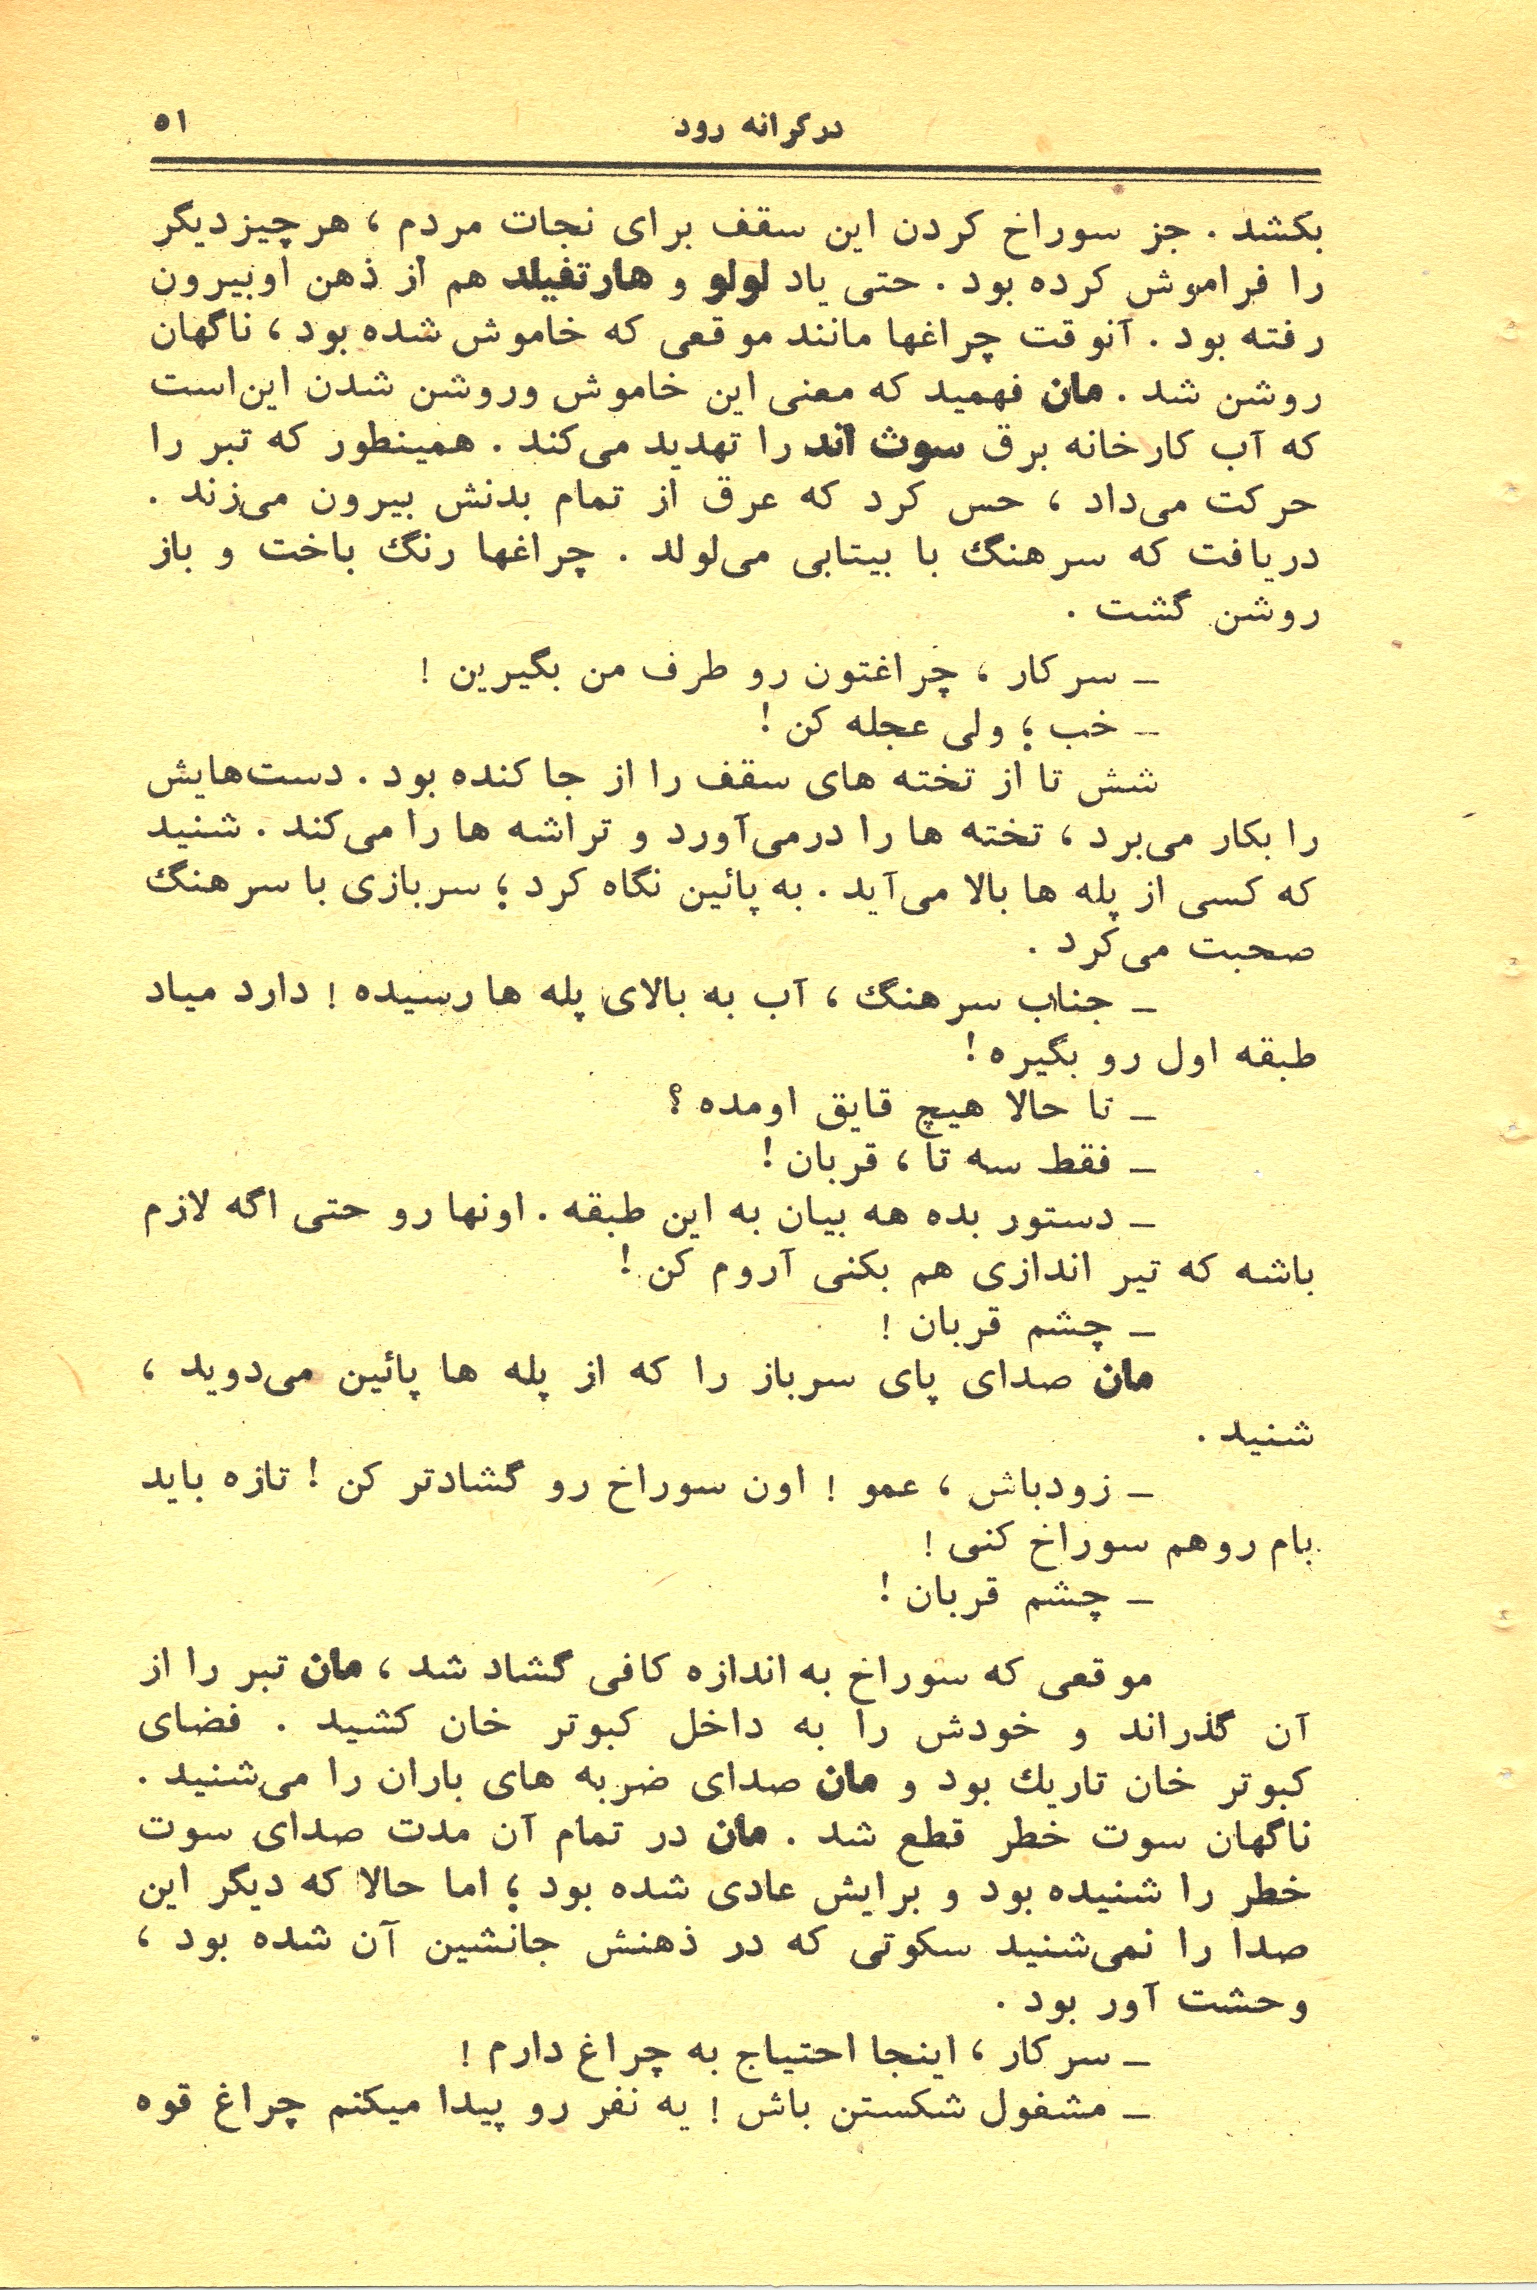 در کرانه رود ۵۱
بکشد . جز سوراخ کردن این سقف برای نجات مردم ، هرچیز دیگر
را فراموش کرده بود . حتی یاد لولو و هارتفیلد هم از ذهن او بیرون
رفته بود . آنوقت چراغها مانند موقعی که خاموش شده بود ، ناگهان
روشن شد . مان فهمید که معنی این خاموش وروشن شدن این‌است
که آب کارخانه برق سوث اند را تهدید می‌کند . همینطور که تبر را
حرکت می‌داد ، حس کرد که عرق از تمام بدنش بیرون می‌زند .
دریافت که سرهنگ با بیتابی می‌لولد . چراغها رنگ باخت و باز
روشن گشت .
_ سرکار ، چراغتون رو طرف من بگیرین !
_ خب ؛ ولی عجله کن !
شش تا از تخته های سقف را از جا کنده بود . دست‌هایش
را بکار می‌برد ، تخته ها را درمی‌آورد و تراشه ها را می‌کند . شنید
که کسی از پله ها بالا می‌آید . به پائین نگاه کرد ؛ سربازی با سرهنگ
صحبت می‌کرد .
_ جناب سرهنگ ، آب به بالای پله ها رسیده ! دارد میاد
طبقه اول رو بگیره !
_ تا حالا هیچ قایق اومده ؟
_ فقط سه تا ، قربان !
_ دستور بده هه بیان به این طبقه . اونها رو حتی اگه لازم
باشه که تیر اندازی هم بکنی آروم کن !
_ چشم قربان !
مان صدای پای سرباز را که از پله ها پائین می‌دوید ،
شنید .
_ زودباش ، عمو ! اون سوراخ رو گشادتر کن ! تازه باید
بام روهم سوراخ کنی !
_ چشم قربان !
موقعی که سوراخ به اندازه کافی گشاد شد ، مان تبر را از
آن گذراند و خودش را به داخل کبوتر خان کشید . فضای
کبوتر خان تاریك بود و مان صدای ضربه های باران را می‌شنید .
ناگهان سوت خطر قطع شد . مان در تمام آن مدت صدای سوت
خطر را شنیده بود و برایش عادی شده بود ؛ اما حالا که دیگر این
صدا را نمی‌شنید سکوتی که در ذهنش جانشین آن شده بود ،
وحشت آور بود .
_ سرکار ، اینجا احتیاج به چراغ دارم !
_ مشغول شکستن باش ! یه نفر رو پیدا میکنم چراغ قوه